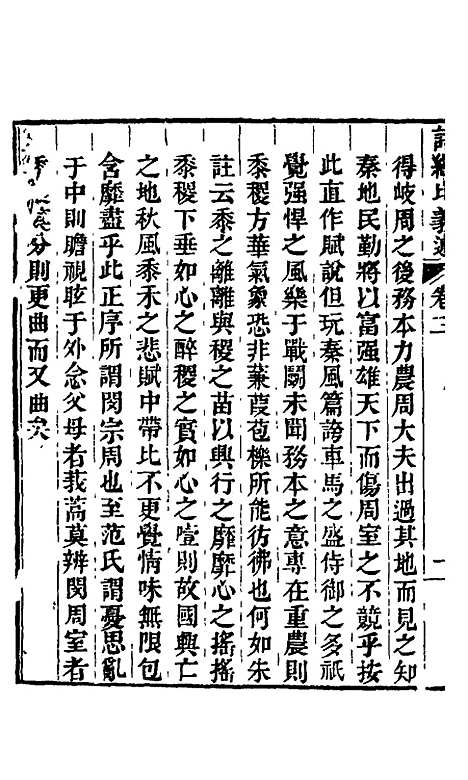 卷三
得岐周之後務本力農周大夫出過其地而見之知
秦地民勤將以富强雄天下而傷周室之不競乎按
此直作賦說但玩秦風篇誇車馬之盛侍御之多祇
覺强悍之風樂于戰鬬未聞務本之意專在重農則
黍稷方華氣象恐非蒹葭苞櫟所能彷彿也何如朱
註云黍之離離與稷之苗以興行之靡靡心之搖搖
黍稷下垂如心之醉稷之實如心之噎則故國興亡
之地秋風黍禾之悲賦中帶比不更覺情味無限包
含靡盡乎此正序所謂閔宗周也至范氏謂憂思亂
于中則瞻視眩于外念父母者莪蒿莫辨閔周室者
分則更曲而又曲矣